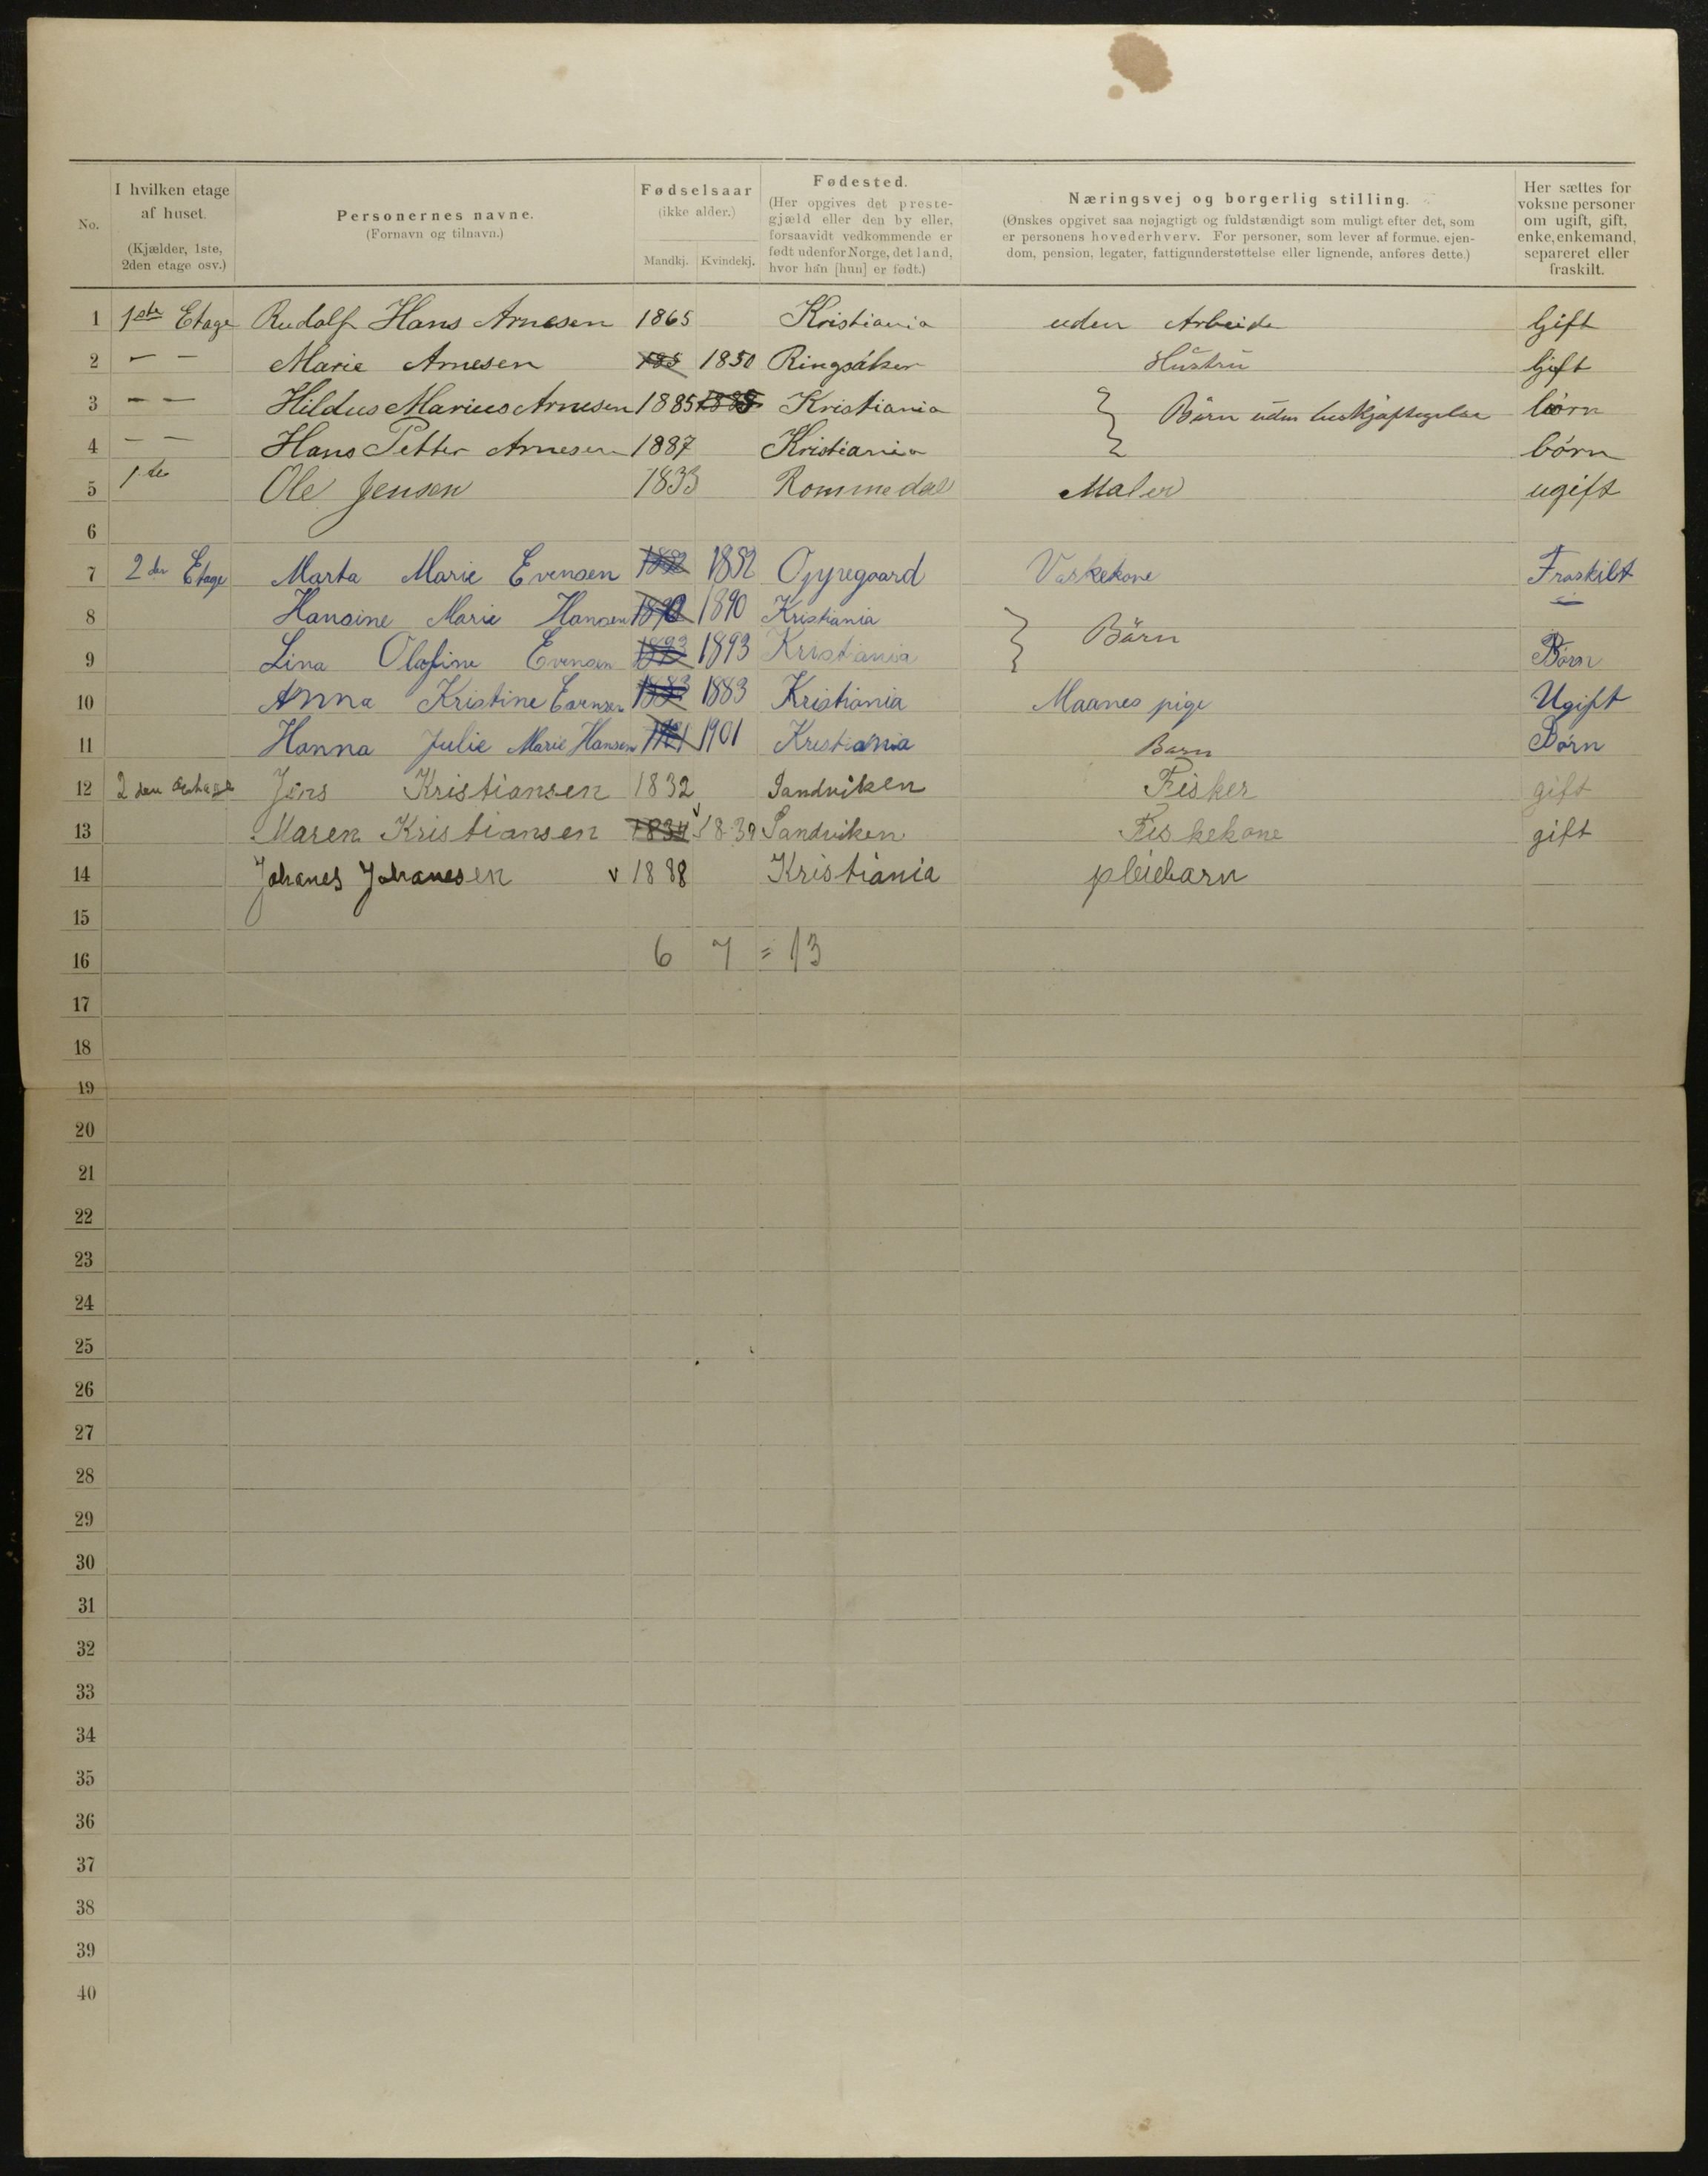 No. I hvilken etage af huset. (Kjælder, 1ste, 2den etage osv.) Personernes navne. (Fornavn og tilnavn.) Fødselsaar (ikke alder.) Mandkj. Kvindekj. Fødested. (Her opgives det prestegjæld eller den by eller, forsaavidt vedkommende er født udenfor Norge, det land, hvor han [hun] er født.) Næringsvej og borgerlig stilling. (Ønskes opgivet saa nøjagtigt og fuldstændigt som muligt efter det, som er personens hovederhverv. For personer, som lever af formue, ejendom, pension, legater, fattigunderstøttelse eller lignende, anføres dette.) Her sættes for voksne personer om ugift, gift, enke, enkemand, separeret eller fraskilt.
1 1ste Etage Rudolf Hans Arnesen 1865 Kristiania uden Arbeide Gift
2 — — Marie Arnesen 1850 Ringsåker Hustru Gift
3 — — Hildus Marius Arnesen 1885 Kristiania } Børn uden beskjæftigelse børn
4 — — Hans Petter Arnesen 1887 Kristiania børn
5 1ste Ole Jensen 1833 Rommedal Maler ugift
6
7 2den Etage Marta Marie Evensen 1852 Oppegaard Vaskekone Fraskilt
8 Hansine Marie Hansen 1890 1890 Kristiania } Börn
9 Lina Olafine Evensen 1893 1893 Kristiania Børn
10 Anna Kristine Evensen 1883 1883 Kristiania Maanes pige Ugift
11 Hanna Julie Marie Hansen 1901 Kristiania Barn Børn
12 2den Jens Kristiansen 1832 Sandviken Fisker gift
13 Maren Kristiansen 1834 Sandviken Fiskekone gift
14 Johanes Johanesen v 1888 Kristiania pleiebarn
15
16 6 7 = 13
17
18
19
20
21
22
23
24
25
26
27
28
29
30
31
32
33
34
35
36
37
38
39
40